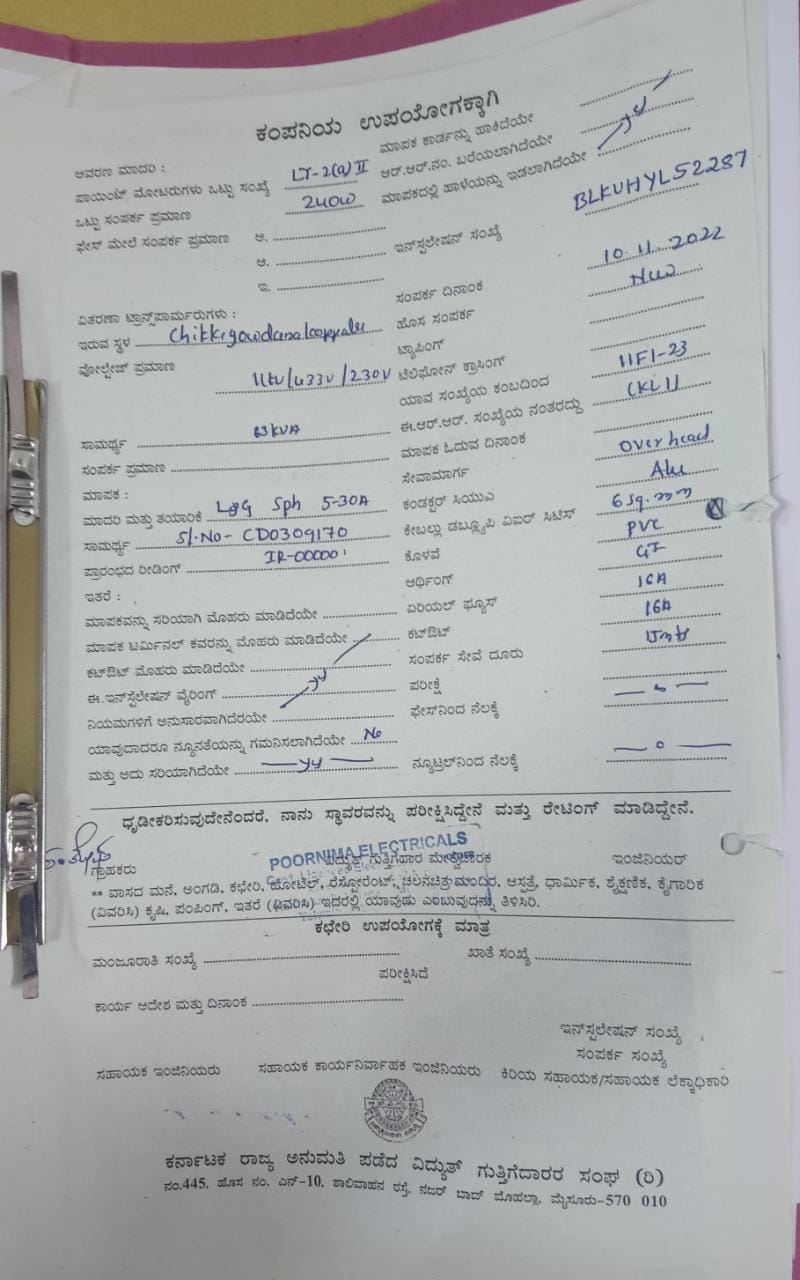 ಕಂಪನಿಯ ಉಪಯೋಗಕ್ಕಾಗಿ
ಆವರಣ ಮಾದರಿ :
ಪಾಯಿಂಟ್ ಮೋಟರುಗಳು ಒಟ್ಟು ಸಂಖ್ಯೆ LT-2(a) II
ಒಟ್ಟು ಸಂಪರ್ಕ ಪ್ರಮಾಣ 240W
ಫೇಸ್ ಮೇಲೆ ಸಂಪರ್ಕ ಪ್ರಮಾಣ ಅ.
ಆ.
ಇ.
ವಿತರಣಾ ಟ್ರಾನ್ಸ್‌ಪಾರ್ಮರುಗಳು :
ಇರುವ ಸ್ಥಳ Chikkegowdanakoppalu
ವೋಲ್ಟೇಜ್ ಪ್ರಮಾಣ 11kv/433v/230v
ಸಾಮರ್ಥ್ಯ 63KVA
ಸಂಪರ್ಕ ಪ್ರಮಾಣ
ಮಾಪಕ :
ಮಾದರಿ ಮತ್ತು ತಯಾರಿಕೆ L&G Sph 5-30A
ಸಾಮರ್ಥ್ಯ Sl.No- CD0309170
ಪ್ರಾರಂಭದ ರೀಡಿಂಗ್ IR-00000
ಇತರೆ :
ಮಾಪಕವನ್ನು ಸರಿಯಾಗಿ ಮೊಹರು ಮಾಡಿದೆಯೇ
ಮಾಪಕ ಟರ್ಮಿನಲ್ ಕವರನ್ನು ಮೊಹರು ಮಾಡಿದೆಯೇ
ಕಟ್‌ಔಟ್ ಮೊಹರು ಮಾಡಿದೆಯೇ
ಈ ಇನ್‌ಸ್ಟಲೇಷನ್ ವೈರಿಂಗ್
ನಿಯಮಗಳಿಗೆ ಅನುಸಾರವಾಗಿದೆರಯೇ
ಯಾವುದಾದರೂ ನ್ಯೂನತೆಯನ್ನು ಗಮನಿಸಲಾಗಿದೆಯೇ No
ಮತ್ತು ಅದು ಸರಿಯಾಗಿದೆಯೇ
ಮಾಪಕ ಕಾರ್ಡನ್ನು ಹಾಕಿದೆಯೇ
ಆರ್.ಆರ್.ನಂ. ಬರೆಯಲಾಗಿದೆಯೇ
ಮಾಪಕದಲ್ಲಿ ಹಾಳೆಯನ್ನು ಇಡಲಾಗಿದೆಯೇ
ಇನ್‌ಸ್ಪಲೇಷನ್ ಸಂಖ್ಯೆ BLKVHYL52287
ಸಂಪರ್ಕ ದಿನಾಂಕ 10.11.2022
ಹೊಸ ಸಂಪರ್ಕ New
ಟ್ಯಾಪಿಂಗ್
ಟೆಲಿಫೋನ್ ಕ್ರಾಸಿಂಗ್
ಯಾವ ಸಂಖ್ಯೆಯ ಕಂಬದಿಂದ 11F1-23
ಈ.ಆರ್.ಆರ್. ಸಂಖ್ಯೆಯ ನಂತರದ್ದು
ಮಾಪಕ ಓದುವ ದಿನಾಂಕ
ಸೇವಾಮಾರ್ಗ Overhead
ಕಂಡಕ್ಟರ್ ಸಿಯುಎ Alu
ಕೇಬಲ್ಲು ಡಬ್ಲ್ಯೂಪಿ ವಿಐರ್ ಸಿಟಿಸ್ 6 sq.mm
ಕೊಳವೆ PVC
ಆರ್ಥಿಂಗ್ GI
ಏರಿಯಲ್ ಫ್ಯೂಸ್ 16A
ಕಟ್‌ಔಟ್ 16A
ಸಂಪರ್ಕ ಸೇವೆ ದೂರು
ಪರೀಕ್ಷೆ
ಫೇಸ್‌ನಿಂದ ನೆಲಕ್ಕೆ
ನ್ಯೂಟ್ರಲ್‌ನಿಂದ ನೆಲಕ್ಕೆ
ಧೃಡೀಕರಿಸುವುದೇನೆಂದರೆ, ನಾನು ಸ್ಥಾವರವನ್ನು ಪರೀಕ್ಷಿಸಿದ್ದೇನೆ ಮತ್ತು ರೇಟಿಂಗ್ ಮಾಡಿದ್ದೇನೆ.
POORNIMA ELECTRICALS
ಗ್ರಾಹಕರು ವಿದ್ಯುತ್ ಗುತ್ತಿಗೆದಾರ ಮೇಲ್ವಿಚಾರಕ ಇಂಜಿನಿಯರ್
** ವಾಸದ ಮನೆ, ಅಂಗಡಿ, ಕಛೇರಿ, ಹೋಟೆಲ್, ರೆಸ್ಟೋರೆಂಟ್, ಚಲನಚಿತ್ರಮಂದಿರ, ಆಸ್ಪತ್ರೆ, ಧಾರ್ಮಿಕ, ಶೈಕ್ಷಣಿಕ, ಕೈಗಾರಿಕ
(ವಿವರಿಸಿ) ಕೃಷಿ, ಪಂಪಿಂಗ್, ಇತರೆ (ವಿವರಿಸಿ) ಇದರಲ್ಲಿ ಯಾವುದು ಎಂಬುವುದನ್ನು ತಿಳಿಸಿರಿ.
ಕಛೇರಿ ಉಪಯೋಗಕ್ಕೆ ಮಾತ್ರ
ಮಂಜೂರಾತಿ ಸಂಖ್ಯೆ ಖಾತೆ ಸಂಖ್ಯೆ
ಪರೀಕ್ಷಿಸಿದೆ
ಕಾರ್ಯ ಆದೇಶ ಮತ್ತು ದಿನಾಂಕ
ಇನ್‌ಸ್ಪಲೇಷನ್ ಸಂಖ್ಯೆ
ಸಂಪರ್ಕ ಸಂಖ್ಯೆ
ಸಹಾಯಕ ಇಂಜಿನಿಯರು ಸಹಾಯಕ ಕಾರ್ಯನಿರ್ವಾಹಕ ಇಂಜಿನಿಯರು ಕಿರಿಯ ಸಹಾಯಕ/ಸಹಾಯಕ ಲೆಕ್ಕಾಧಿಕಾರಿ
ಕರ್ನಾಟಕ ರಾಜ್ಯ ಅನುಮತಿ ಪಡೆದ ವಿದ್ಯುತ್ ಗುತ್ತಿಗೆದಾರರ ಸಂಘ (ರಿ)
ನಂ.445, ಹೊಸ ನಂ. ಎನ್-10, ಶಾಲಿವಾಹನ ರಸ್ತೆ, ನಜರ್ ಬಾದ್ ಮೊಹಲ್ಲಾ, ಮೈಸೂರು-570 010